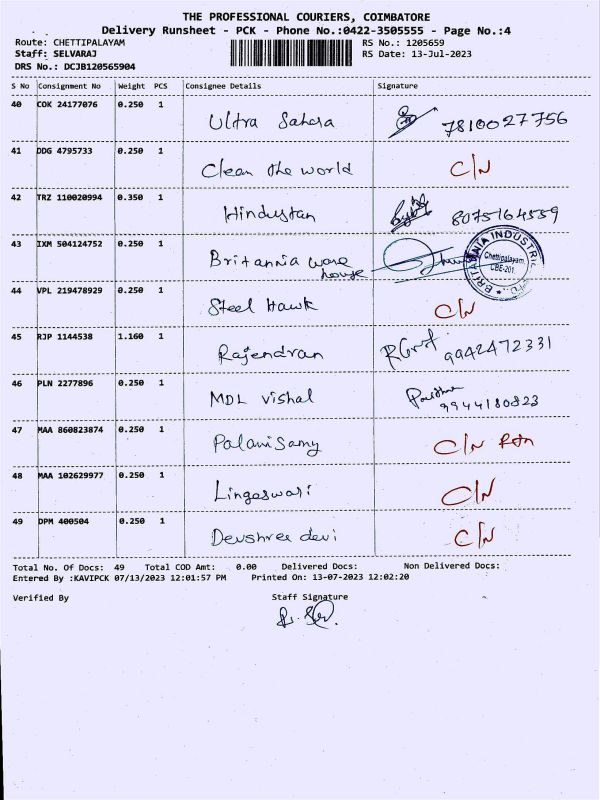 THE PROFESSIONAL COURIERS, COIMBATORE
Delivery Runsheet - PCK - Phone No.:0422-3505555 - Page No.:4
Route: CHETTIPALAYAM RS No.: 1205659
Staff: SELVARAJ RS Date: 13-Jul-2023
DRS No.: DCJB120565904
S No Consignment No Weight PCS Consignee Details Signature
40 COK 24177076 0.250 1 Ultra Sahara 7810027756
41 DDG 4795733 0.250 1 Clean the world C/N
42 TRZ 110020994 0.350 1 Hindustan 8075164559
43 IXM 504124752 0.250 1 Britannia ware house
BRITANNIA INDUSTRIES Chettipalayam, CBE-201.
44 VPL 219478929 0.250 1 Steel Hawk C/N
45 RJP 1144538 1.160 1 Rajendran 9942472331
46 PLN 2277896 0.250 1 MDL Vishal 9944180823
47 MAA 860823874 0.250 1 Palanisamy C/N Rtn
48 MAA 102629977 0.250 1 Lingeswari C/N
49 DPM 400504 0.250 1 Devshree devi C/N
Total No. Of Docs: 49 Total COD Amt: 0.00 Delivered Docs: Non Delivered Docs:
Entered By :KAVIPCK 07/13/2023 12:01:57 PM Printed On: 13-07-2023 12:02:20
Verified By Staff Signature